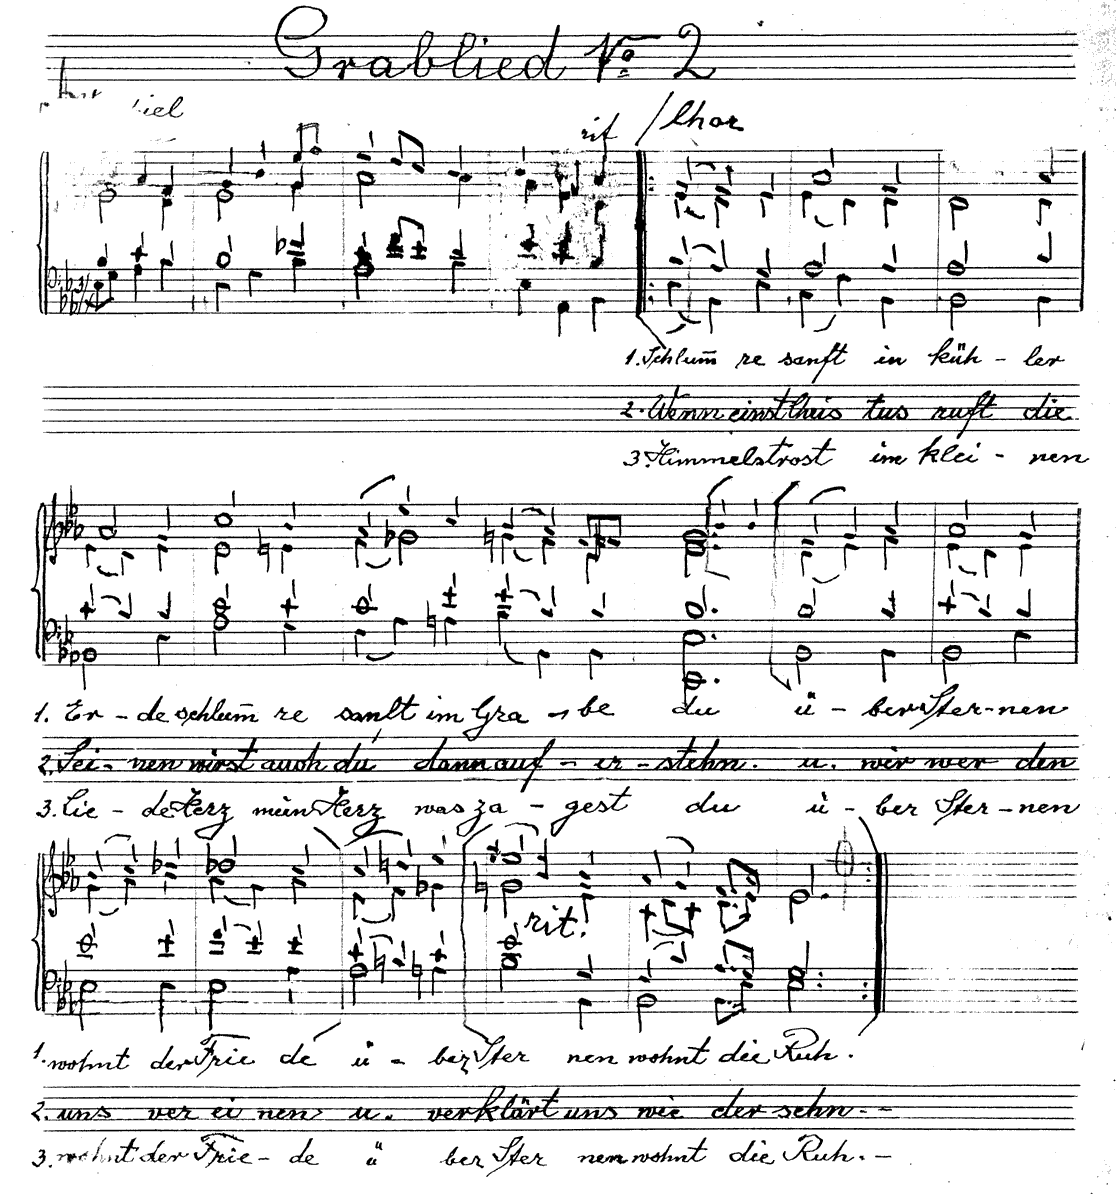 Grablied No 2
rit Chor
1. Schlum̄ re sanft in küh - ler
2. Wenn einst Chris tus ruft die
3. Himmelstrost im klei - nen
1. Er - de schlum̄ re sanft im Gra - be du ü - ber Ster - nen
2. Sei - nen wirst auch du dann auf - er - stehn. u. wir wer den
3. Lie - de Herz mein Herz was za - gest du ü - ber Ster - nen
rit.
1. wohnt der Frie de ü - ber Ster nen wohnt die Ruh.
2. uns ver ei nen u. verklärt uns wie der sehn. -
3. wohnt der Frie - de ü ber Ster nen wohnt die Ruh. -